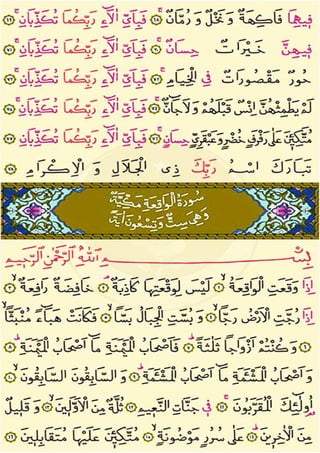 فِيهِمَا فَاكِهَةٌ وَ نَخْلٌ وَ رُمَّانٌ ۞٦٨ فَبِأَيِّ اٰلَٓاءِ رَبِّكُمَا تُكَذِّبَانِ ٦٩
فِيهِنَّ خَيْرَاتٌ حِسَانٌ ٧٠ فَبِأَيِّ اٰلَٓاءِ رَبِّكُمَا تُكَذِّبَانِ ٧١
حُورٌ مَقْصُورَاتٌ فِي الْخِيَامِ ٧٢ فَبِأَيِّ اٰلَٓاءِ رَبِّكُمَا تُكَذِّبَانِ ٧٣
لَمْ يَطْمِثْهُنَّ إِنْسٌ قَبْلَهُمْ وَلَا جَٓانٌّ ٧٤ فَبِأَيِّ اٰلَٓاءِ رَبِّكُمَا تُكَذِّبَانِ ٧٥
مُتَّكِئِينَ عَلَى رَفْرَفٍ خُضْرٍ وَعَبْقَرِيٍّ حِسَانٍ ٧٦ فَبِأَيِّ اٰلَٓاءِ رَبِّكُمَا تُكَذِّبَانِ ٧٧
تَبَارَكَ اسْمُ رَبِّكَ ذِى الْجَلَالِ وَ الْإِكْرَامِ ٧٨
سُورَةُ الْوَاقِعَةِ مَكِّيَّةٌ
وَهِيَ سِتٌّ وَتِسْعُونَ اٰيَةً
بِسْمِ اللّٰهِ الرَّحْمٰنِ الرَّحِيمِ
إِذَا وَقَعَتِ الْوَاقِعَةُ ١ لَيْسَ لِوَقْعَتِهَا كَاذِبَةٌ ٢ خَافِضَةٌ رَافِعَةٌ ٣
إِذَا رُجَّتِ الْأَرْضُ رَجًّا ٤ وَ بُسَّتِ الْجِبَالُ بَسًّا ٥ فَكَانَتْ هَبَٓاءً مُنْبَثًّا
٦ وَ كُنْتُمْ أَزْوَاجًا ثَلٰثَةً ٧ فَأَصْحَابُ الْمَيْمَنَةِ مَٓا أَصْحَابُ الْمَيْمَنَةِ ٨
وَ أَصْحَابُ الْمَشْئَمَةِ مَٓا أَصْحَابُ الْمَشْئَمَةِ ٩ وَ السَّابِقُونَ السَّابِقُونَ ١٠
أُولٰٓئِكَ الْمُقَرَّبُونَ ١١ فِي جَنَّاتِ النَّعِيمِ ١٢ ثُلَّةٌ مِنَ الْأَوَّلِينَ ١٣ وَ قَلِيلٌ
مِنَ الْاٰخِرِينَ ١٤ عَلَى سُرُرٍ مَوْضُونَةٍ ١٥ مُتَّكِئِينَ عَلَيْهَا مُتَقَابِلِينَ ١٦